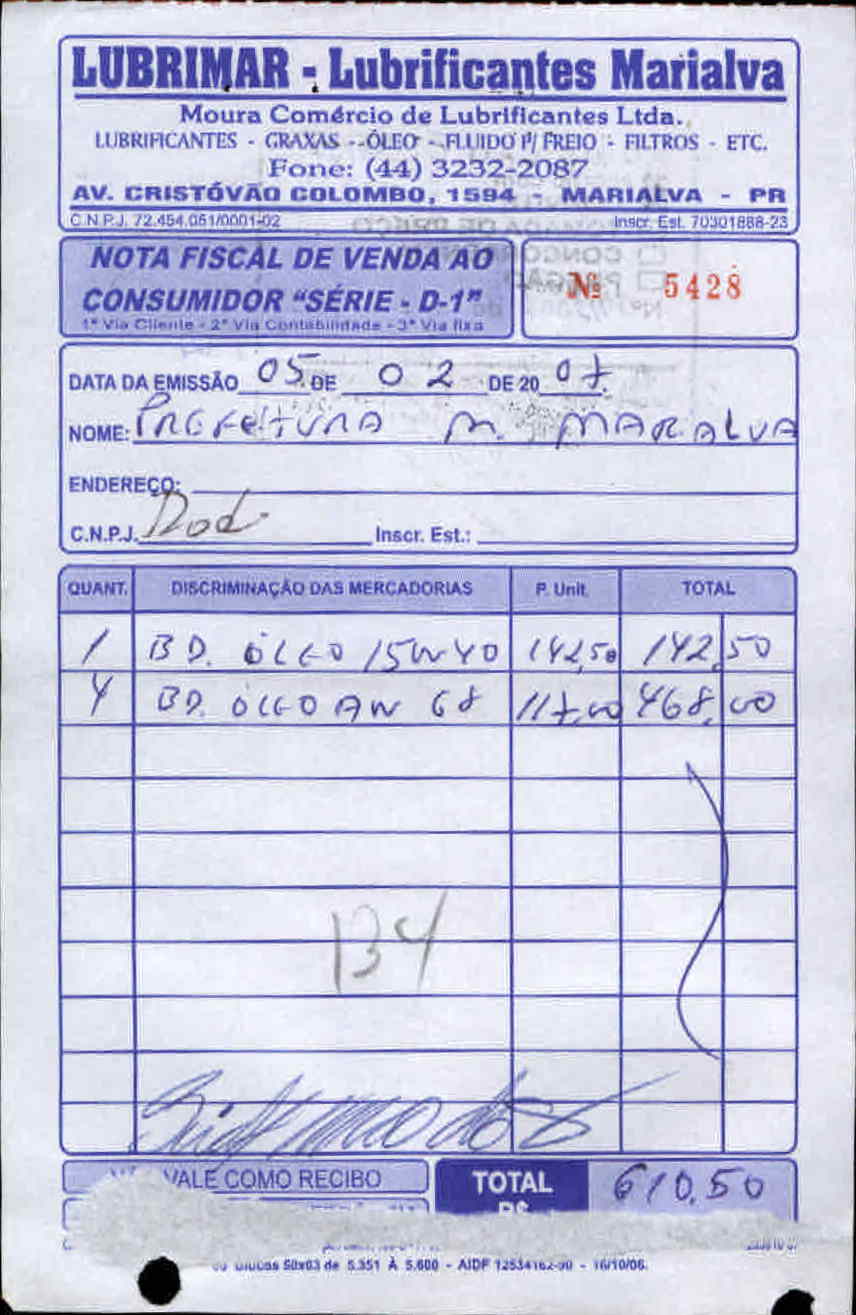 LUBRIMAR - Lubrificantes Marialva
Moura Comércio de Lubrificantes Ltda.
LUBRIFICANTES - GRAXAS - ÓLEO - FLUIDO P/ FREIO - FILTROS - ETC.
Fone: (44) 3232-2087
AV. CRISTÓVÃO COLOMBO, 1594 - MARIALVA - PR
C.N.P.J. 72.454.051/0001-02 Inscr. Est. 70301888-23
NOTA FISCAL DE VENDA AO
CONSUMIDOR "SÉRIE - D-1"
1ª Via Cliente - 2ª Via Contabilidade - 3ª Via fixa
Nº 5428
DATA DA EMISSÃO 05 DE 02 DE 20 07
NOME: PREFEITURA M. MARIALVA
ENDEREÇO:
C.N.P.J. Rod. Inscr. Est.:
QUANT. DISCRIMINAÇÃO DAS MERCADORIAS P. Unit. TOTAL
1 BD. ÓLEO 15W40 142,50 142,50
4 BD. ÓLEO AW 68 117,00 468,00
134
VALE COMO RECIBO TOTAL 610,50
R$
Blocos 50x03 de 5.351 À 5.600 - AIDF 12534162-90 - 16/10/06.